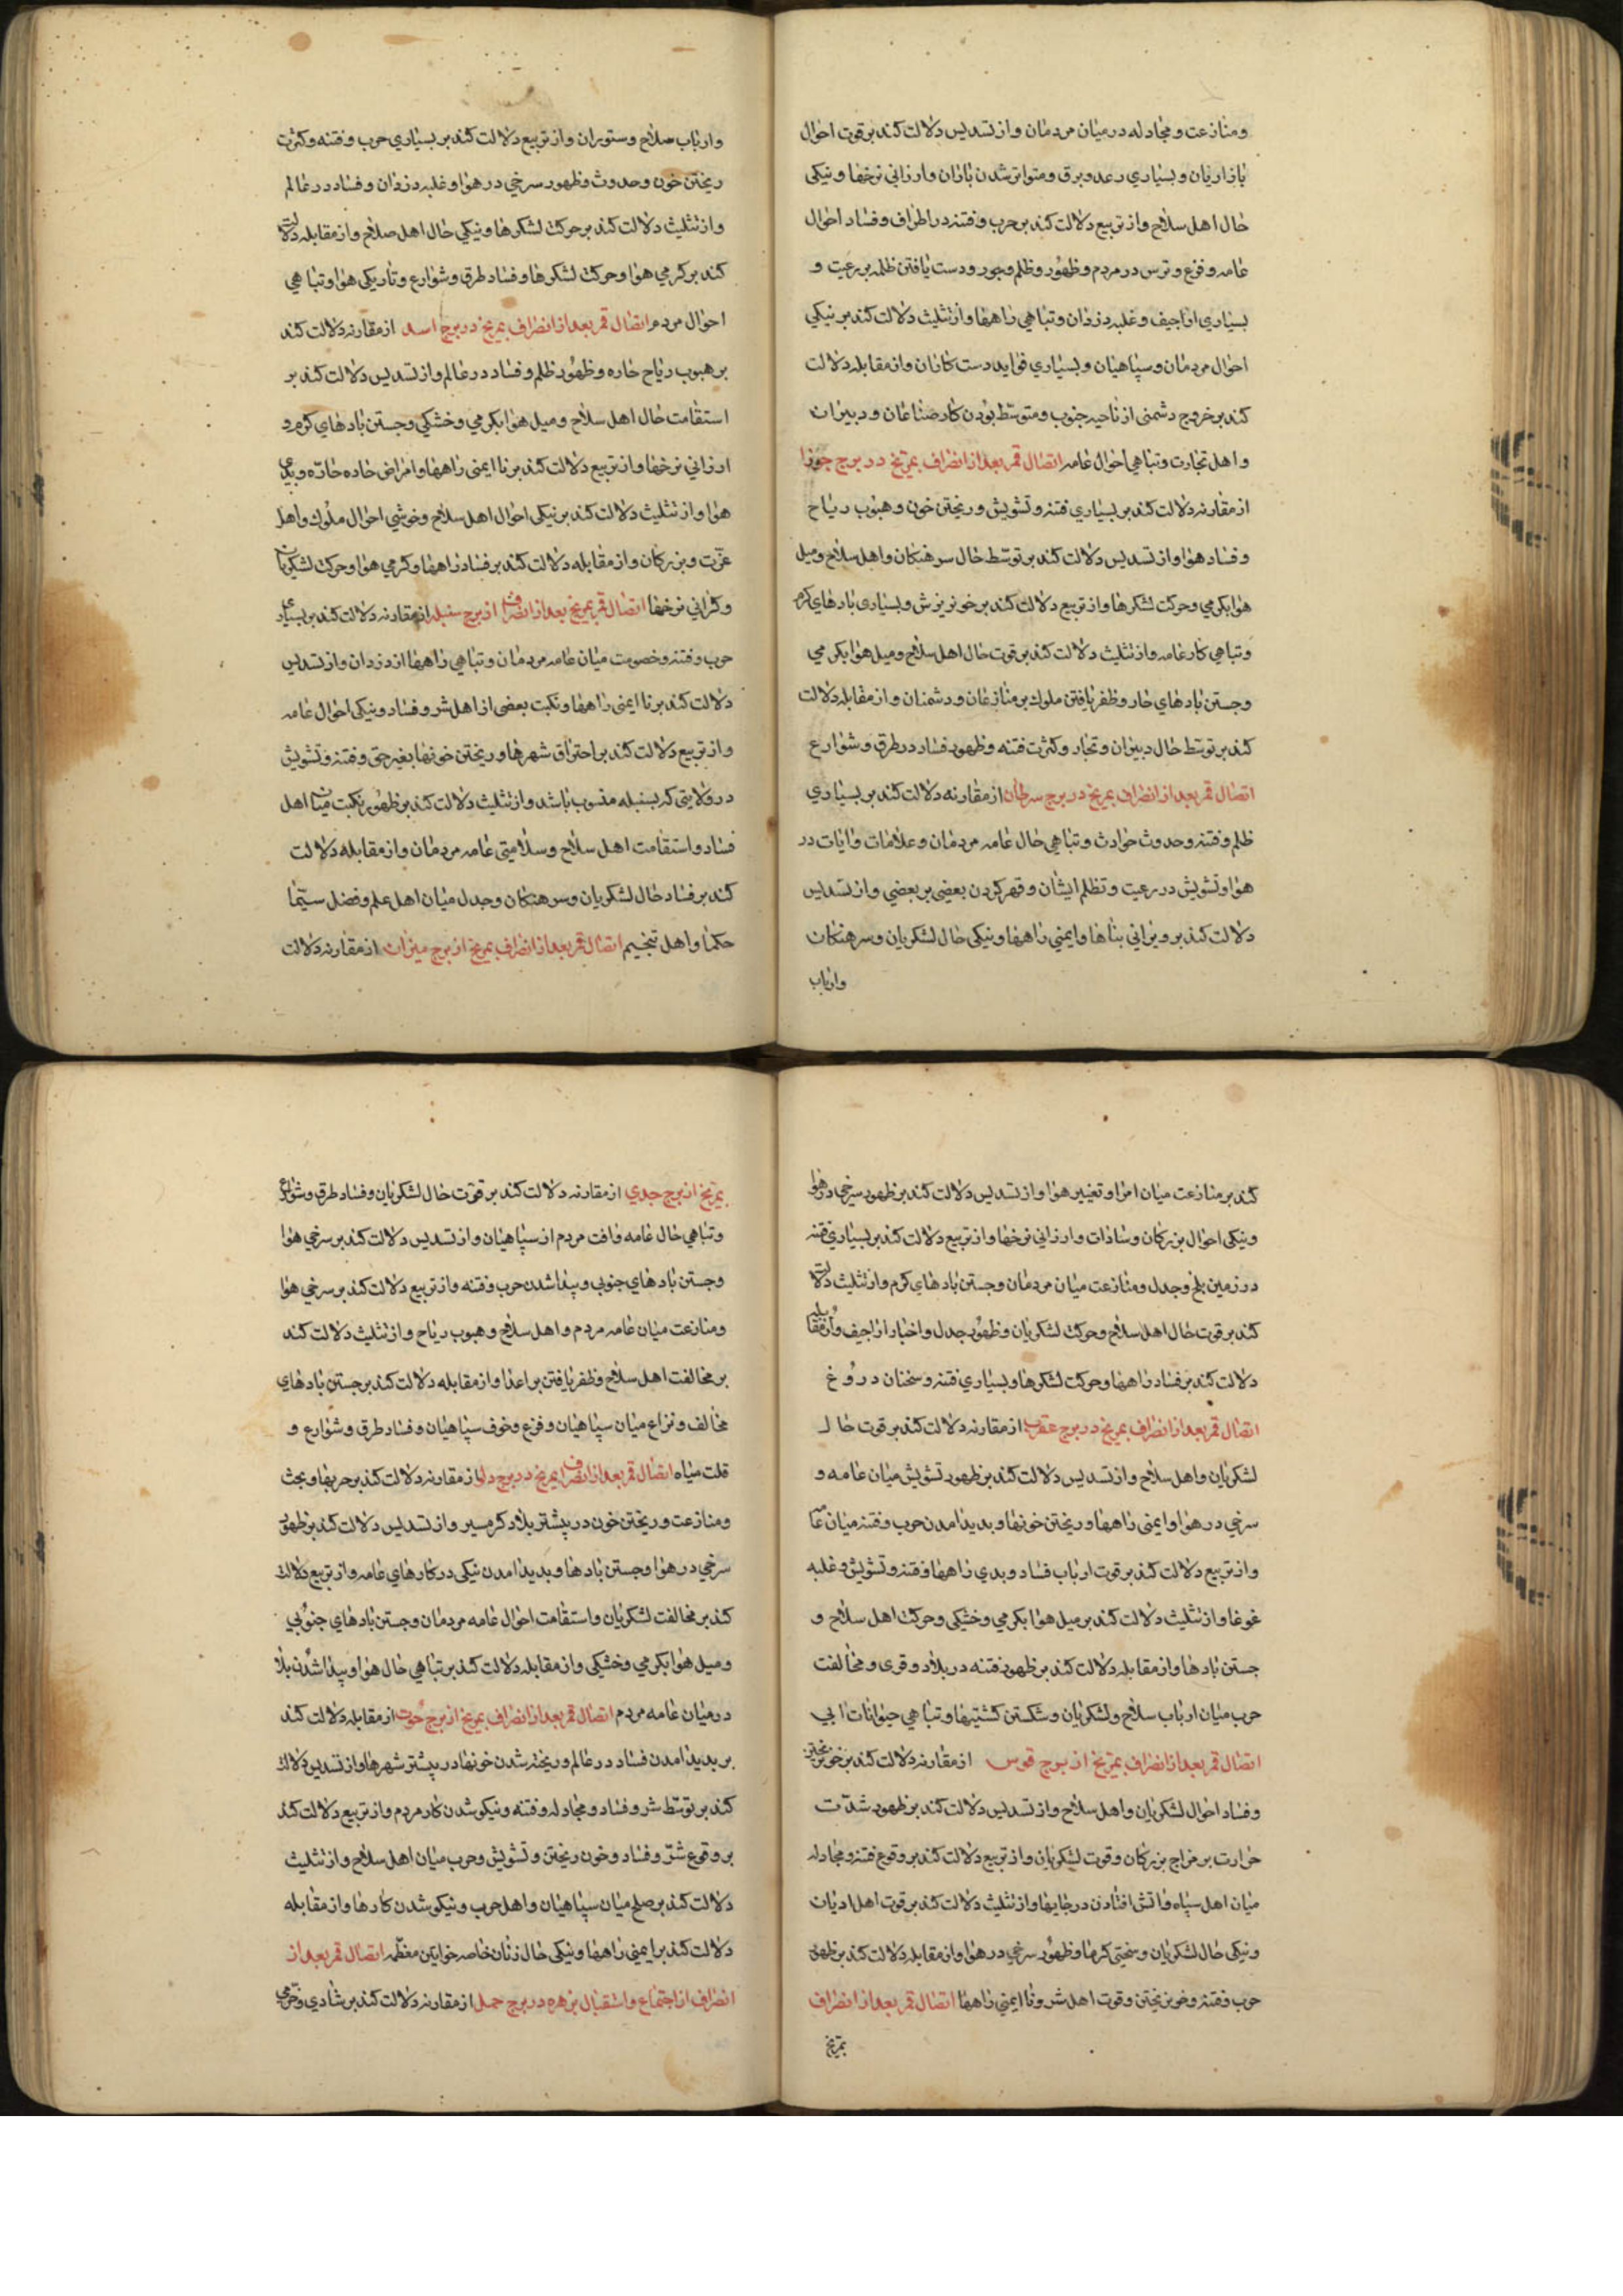 ومنازعت ومجادله در میان مردمان واز تسدیس دلالت کند بر قوت احوال
بازاریان وبسیاری رعد وبرق ومتواتر شدن باران وارزانی نرخها ونیکی
حال اهل سلاح واز تربیع دلالت کند بر حرب وفتنه در اطراف وفساد احوال
عامه وفزع وترس در مردم وظهور وظلم وجور ودست یافتن ظلمه بر رعیت و
بسیاری اراجیف وغلبه دزدان وتباهی راهها واز تثلیث دلالت کند بر نیکی
احوال مردمان وسپاهیان وبسیاری فواید دست کاران واز مقابله دلالت
کند بر خروج دشمنی از ناحیه جنوب ومتوسّط بودن کار صناعان ودبیران
واهل تجارت وتباهی احوال عامه اتصال قمر بعد از انصراف بمریخ در برج جوزا
از مقارنه دلالت کند بر بسیاری فتنه وتشویش وریختن خون وهبوب ریاح
وفساد هوا واز تسدیس دلالت کند بر توسّط حال سرهنکان واهل سلاح ومیل
هوا بکرمی وحرکت لشکرها واز تربیع دلالت کند بر خونریزش وبسیاری بادهای کرم
وتباهی کار عامه واز تثلیث دلالت کند بر قوت حال اهل سلاح ومیل هوا بکرمی
وجستن بادهای حار وظفر یافتن ملوک بر منازعان ودشمنان واز مقابله دلالت
کند بر توسّط حال دبیران وتجار وکثرت فتنه وظهور فساد در طرق وشوارع
اتصال قمر بعد از انصراف بمریخ در برج سرطان از مقارنه دلالت کند بر بسیاری
ظلم وفتنه وحدوث حوادث وتباهی حال عامه مردمان وعلامات وآیات در
هوا وتشویش در رعیت وتظلم ایشان وقهر کردن بعضی بر بعضی واز تسدیس
دلالت کند بر ویرانی بناها وایمنی راهها ونیکی حال لشکریان وسرهنکان
وارباب
وارباب صلاح وستوران واز تربیع دلالت کند بر بسیاری حرب وفتنه وکثرت
ریختن خون وحدوث وظهور سرخی در هوا وغلبه دزدان وفساد در عالم
واز تثلیث دلالت کند بر حرکت لشکرها ونیکی حال اهل صلاح واز مقابله دلالت
کند بر کرمی هوا وحرکت لشکرها وفساد طرق وشوارع وتاریکی هوا وتباهی
احوال مردم اتصال قمر بعد از انصراف بمریخ در برج اسد از مقارنه دلالت کند
بر هبوب ریاح حاره وظهور ظلم وفساد در عالم واز تسدیس دلالت کند بر
استقامت حال اهل سلاح ومیل هوا بکرمی وخشکی وجستن بادهای کرم و
ارزانی نرخها واز تربیع دلالت کند بر نا ایمنی راهها وامراض حاده حارّه وبدی
هوا واز تثلیث دلالت کند بر نیکی احوال اهل سلاح وخوشی احوال ملوک واهل
عزّت وبزرکان واز مقابله دلالت کند بر فساد راهها وکرمی هوا وحرکت لشکریان
وکرانی نرخها اتصال قمر بمریخ بعد از انصراف از برج سنبله از مقارنه دلالت کند بر بسیاری
حرب وفتنه وخصومت میان عامه مردمان وتباهی راهها از دزدان واز تسدیس
دلالت کند بر نا ایمنی راهها ونکبت بعضی از اهل شر وفساد ونیکی احوال عامه
واز تربیع دلالت کند بر احتراق شهرها وریختن خونها بغیر حق وفتنه وتشویش
در ولایتی که بسنبله منسوب باشد واز تثلیث دلالت کند بر ظهور نکبت میان اهل
فساد واستقامت اهل سلاح وسلامتی عامه مردمان واز مقابله دلالت
کند بر فساد حال لشکریان وسرهنکان وجدل میان اهل علم وفضل سیّما
حکما واهل تنجیم اتصال قمر بعد از انصراف بمریخ از برج میزان از مقارنه دلالت
کند بر منازعت میان امرا وتغییر هوا واز تسدیس دلالت کند بر ظهور سرخی در هوا
ونیکی احوال بزرکان وسادات وارزانی نرخها واز تربیع دلالت کند بر بسیاری فتنه
در زمین بلخ وجدل ومنازعت میان مردمان وجستن بادهای کرم واز تثلیث دلالت
کند بر قوت حال اهل سلاح وحرکت لشکریان وظهور جدل واخبار اراجیف واز مقابله
دلالت کند بر فساد راهها وحرکت لشکرها وبسیاری فتنه وسخنان دروغ
اتصال قمر بعد از انصراف بمریخ در برج عقرب از مقارنه دلالت کند بر قوت حال
لشکریان واهل سلاح واز تسدیس دلالت کند بر ظهور تشویش میان عامه و
سرخی در هوا وایمنی راهها وریختن خونها وبدید امدن حرب وفتنه میان عامه
واز تربیع دلالت کند بر قوت ارباب فساد وبدی راهها وفتنه وتشویش وغلبه
غوغا واز تثلیث دلالت کند بر میل هوا بکرمی وخشکی وحرکت اهل سلاح و
جستن بادها واز مقابله دلالت کند بر ظهور فتنه در بلاد وقری ومخالفت
حرب میان ارباب سلاح ولشکریان وشکستن کشتیها وتباهی حیوانات آبی
اتصال قمر بعد از انصراف بمریخ از برج قوس از مقارنه دلالت کند بر خون ریختن
وفساد احوال لشکریان واهل سلاح واز تسدیس دلالت کند بر ظهور شدّت
حرارت بر مزاج بزرکان وقوت لشکریان واز تربیع دلالت کند بر وقوع فتنه ومجادله
میان اهل سپاه واتش افتادن در جایها واز تثلیث دلالت کند بر قوت اهل ادیان
ونیکی حال لشکریان وسختی کرما وظهور سرخی در هوا واز مقابله دلالت کند بر ظهور
حرب وفتنه وخون ریختن وقوت اهل شر ونا ایمنی راهها اتصال قمر بعد از انصراف
بمریخ
بمریخ از برج جدی از مقارنه دلالت کند بر قوّت حال لشکریان وفساد طرق وشوارع
وتباهی حال عامه وافت مردم از سپاهیان واز تسدیس دلالت کند بر سرخی هوا
وجستن بادهای جنوبی وپیدا شدن حرب وفتنه واز تربیع دلالت کند بر سرخی هوا
ومنازعت میان عامه مردم واهل سلاح وهبوب ریاح واز تثلیث دلالت کند
بر مخالفت اهل سلاح وظفر یافتن بر اعدا واز مقابله دلالت کند بر جستن بادهای
مخالف ونزاع میان سپاهیان وفزع وخوف سپاهیان وفساد طرق وشوارع و
قلت میاه اتصال قمر بعد از انصراف بمریخ در برج دلو از مقارنه دلالت کند بر حربها وبحث
ومنازعت وریختن خون در پیشتر بلاد کرمسیر واز تسدیس دلالت کند بر ظهور
سرخی در هوا وجستن بادها وبدید امدن نیکی در کارهای عامه واز تربیع دلالت
کند بر مخالفت لشکریان واستقامت احوال عامه مردمان وجستن بادهای جنوبی
ومیل هوا بکرمی وخشکی واز مقابله دلالت کند بر تباهی حال هوا وپیدا شدن بلا
در میان عامه مردم اتصال قمر بعد از انصراف بمریخ از برج حوت از مقابله دلالت کند
بر بدید امدن فساد در عالم وریخته شدن خونها در پیشتر شهرها واز تسدیس دلالت
کند بر توسّط شر وفساد ومجادله وفتنه ونیکو شدن کار مردم واز تربیع دلالت کند
بر وقوع شرّ وفساد وخون ریختن وتشویش وحرب میان اهل سلاح واز تثلیث
دلالت کند بر صلح میان سپاهیان واهل حرب ونیکو شدن کارها واز مقابله
دلالت کند بر ایمنی راهها ونیکی حال زنان خاصه خواتین معظّمه اتصال قمر بعد از
انصراف از اجتماع واستقبال بزهره در برج حمل از مقارنه دلالت کند بر شادی وخرّمی